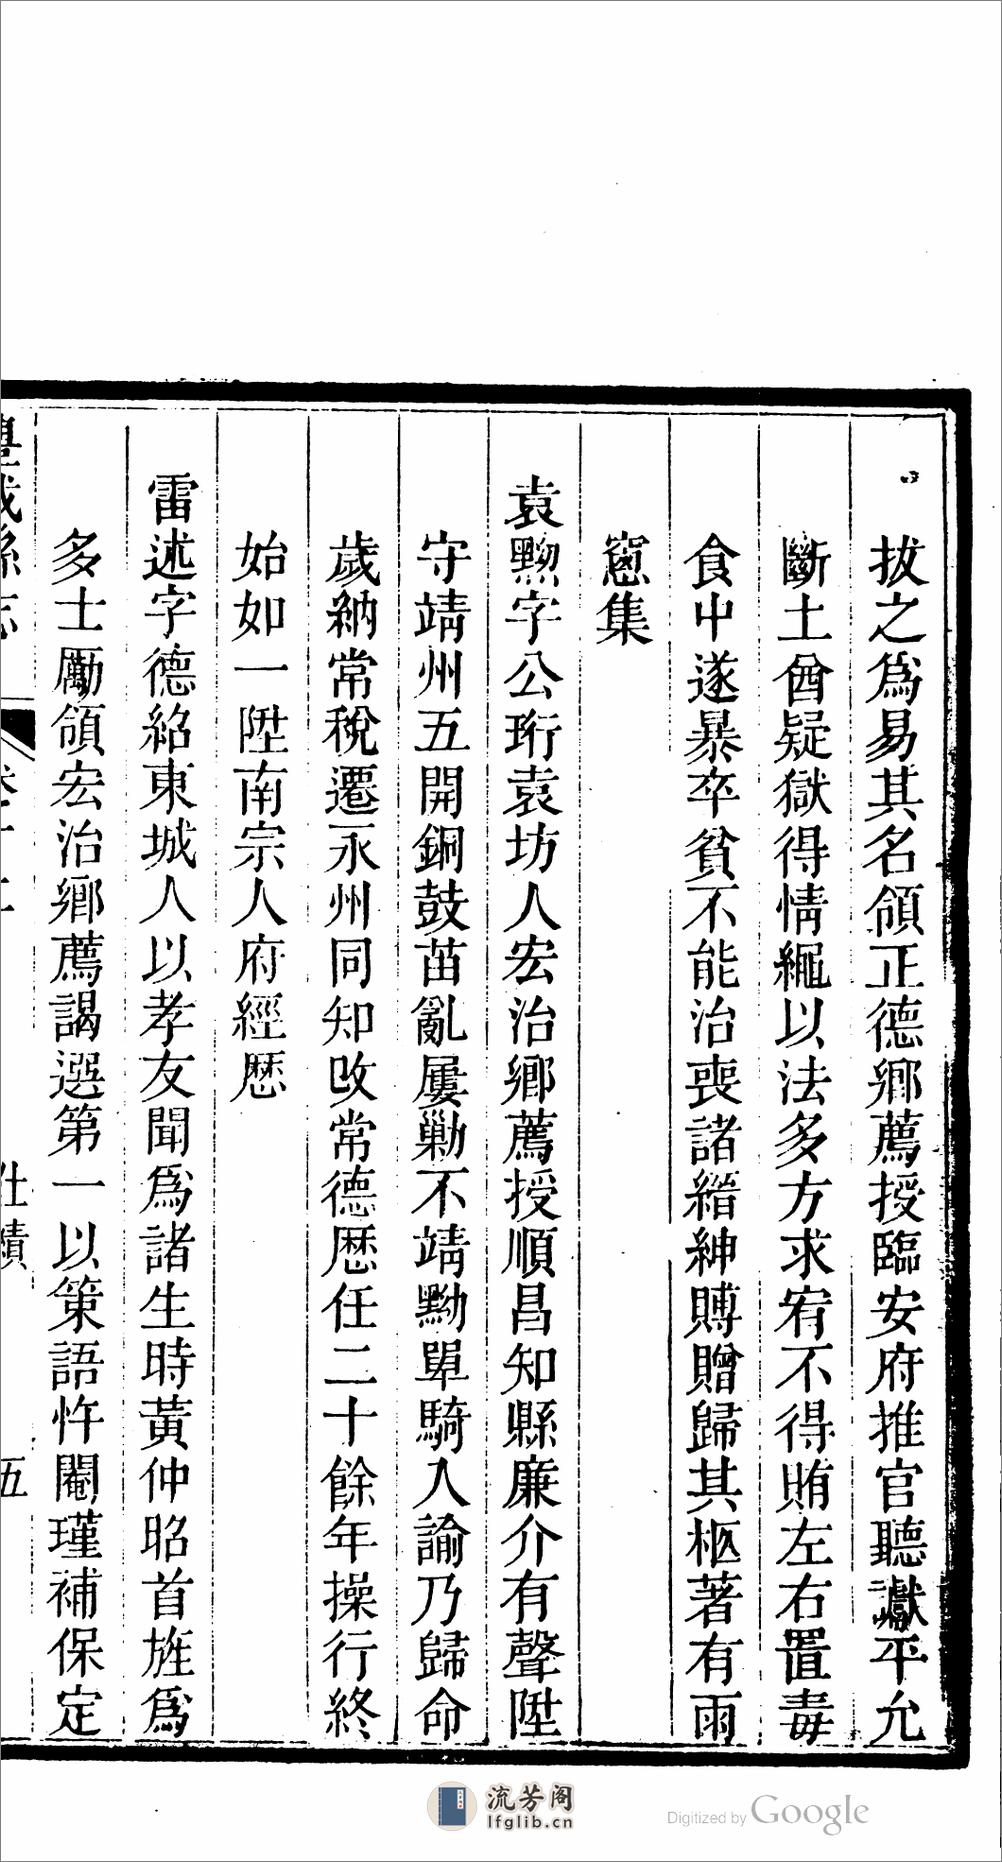 拔之爲易其名領正德鄉薦授臨安府推官聽讞平允
斷土酋疑獄得情繩以法多方求宥不得賄左右置毒
食中遂暴卒貧不能治喪諸縉紳賻贈歸其柩著有雨
窻集
袁黝字公珩袁坊人宏治鄉薦授順昌知縣廉介有聲陞
守靖州五開銅鼓苗亂屢勦不靖黝單騎入諭乃歸命
歲納常稅遷永州同知改常德歷任二十餘年操行終
始如一陞南宗人府經歷
雷述字德紹東城人以孝友聞爲諸生時黃仲昭首旌爲
多士勵領宏治鄉薦謁選第一以策語忤閹瑾補保定
豐城縣志
仕績
五
流芳阁
lfglib.cn
Digitized by Google